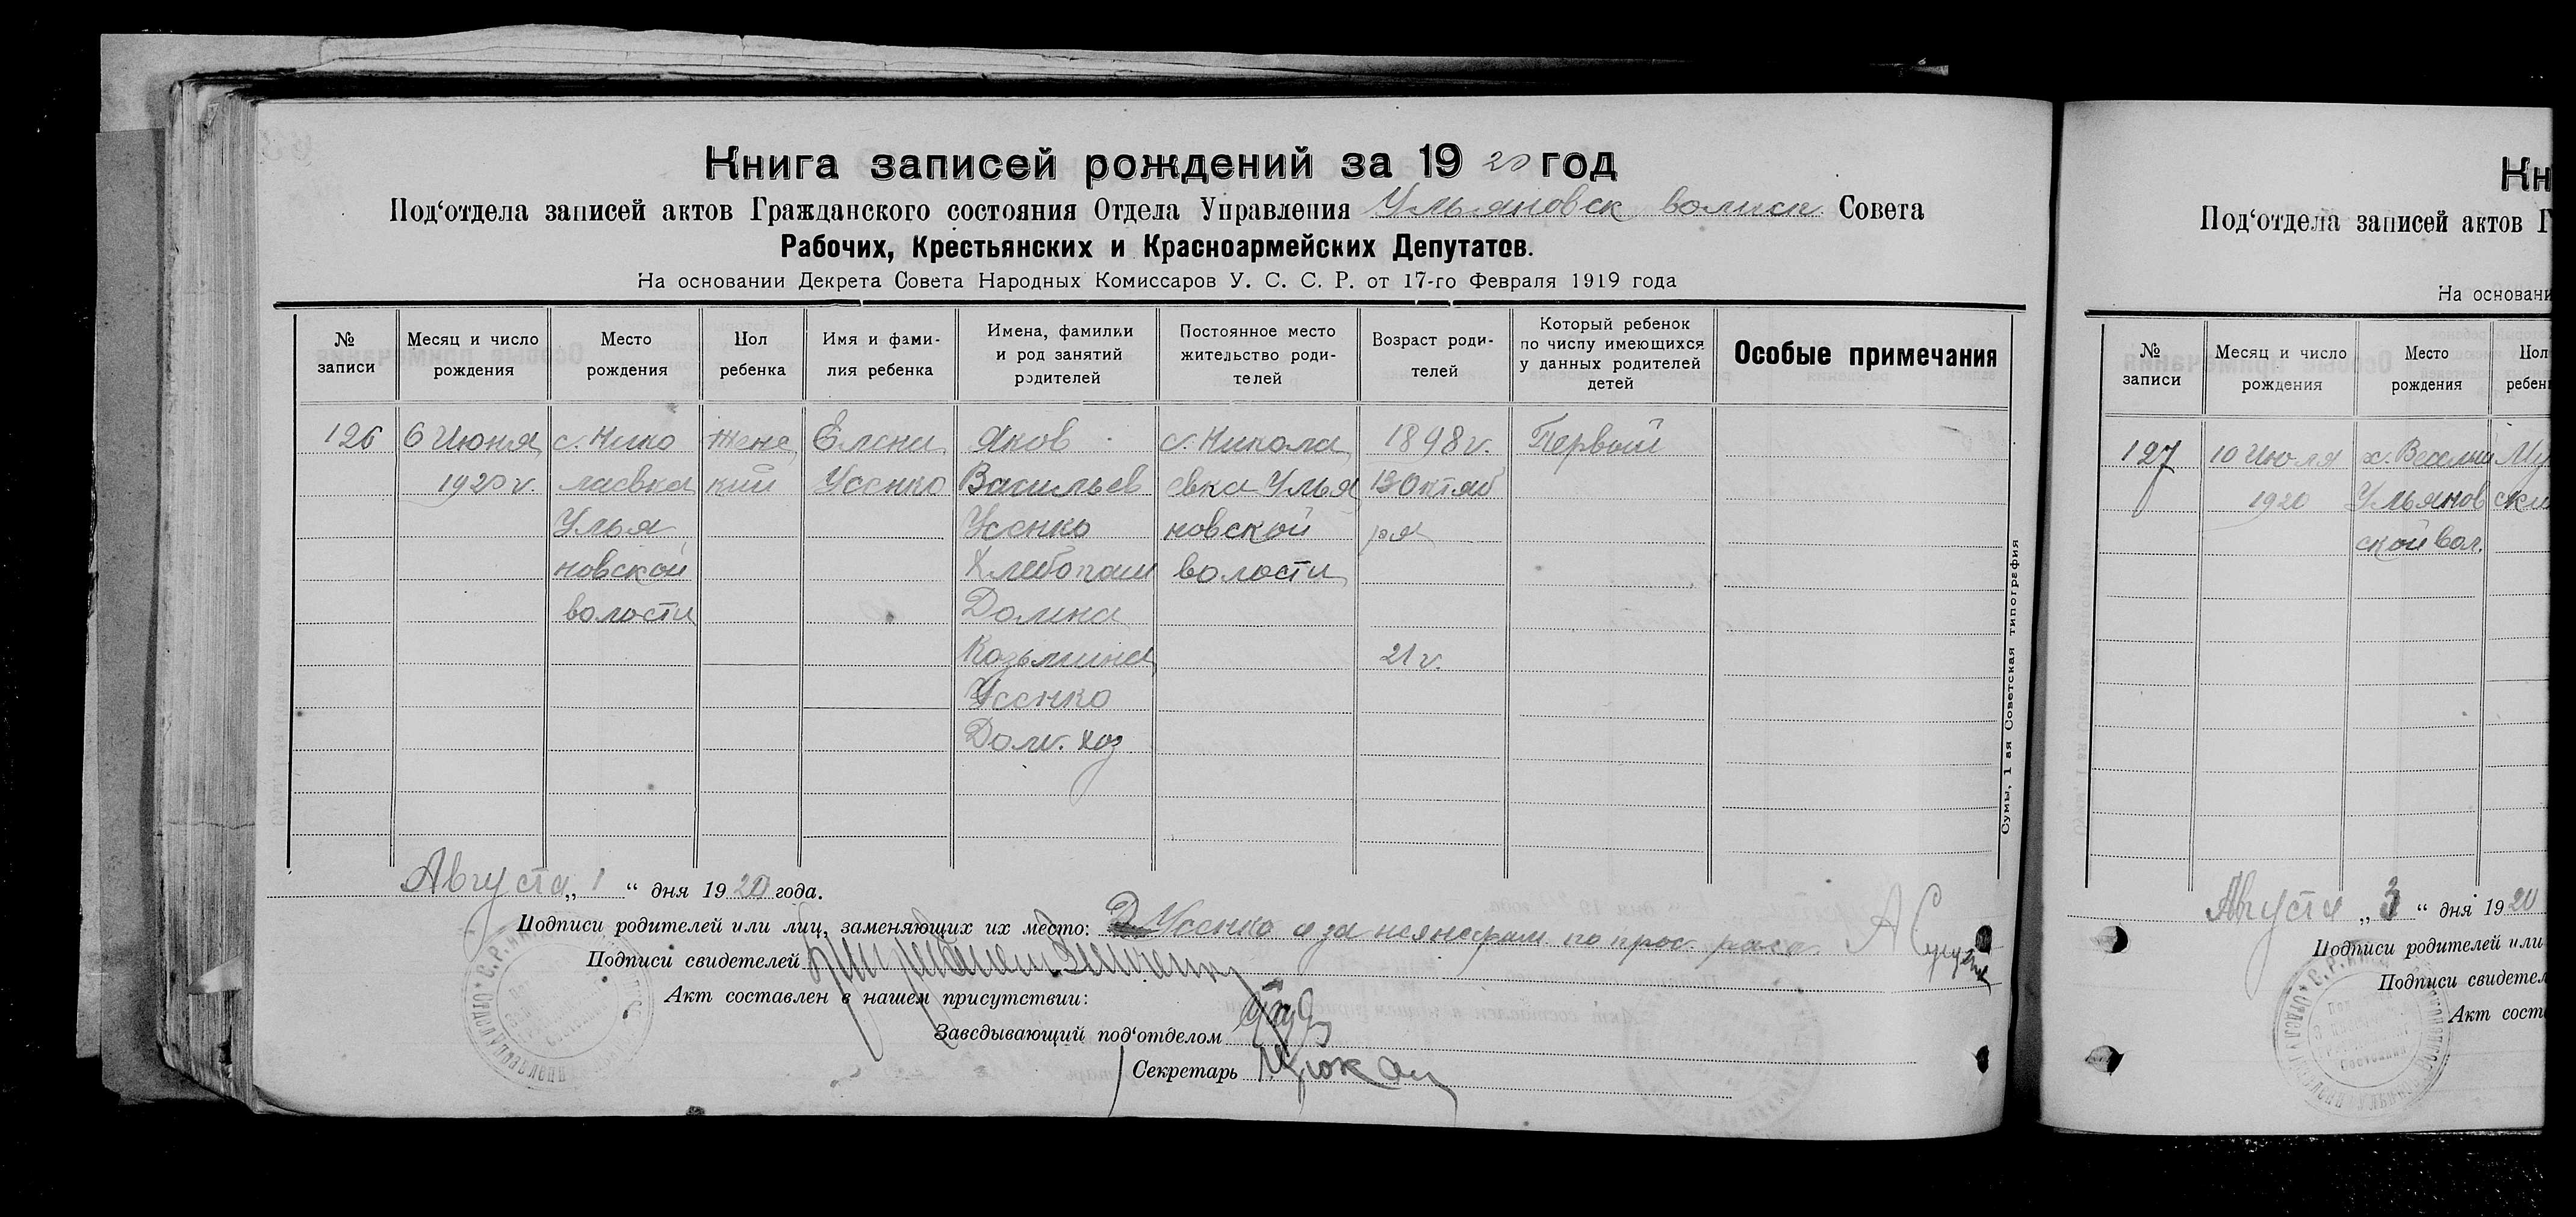 Книга записей рождений за 19 20 год
Под‘отдела записей актов Гражданского состояния Отдела Управления Ульяновск волисп Совета
Рабочих, Крестьянских и Красноармейских Депутатов.
На основании Декрета Совета Народных Комиссаров У. С. С. Р. от 17-го Февраля 1919 года
№ записи
Месяц и число рождения
Место рождения
Пол ребенка
Имя и фами-
лия ребенка
Имена, фамилии
и род занятий
родителей
Постоянное место
жительство роди-
телей
Возраст роди-
телей
Который ребенок
по числу имеющихся
у данных родителей
детей
Особые примечания
126
6 Июня
1920 г.
с. Нико
лаевка
Улья
новской
волости
Женс
кий
Елена
Усенко
Яков
Васильев
Усенко
Хлебопаш
Домна
Козьмина
Усенко
Дом. хоз
с. Никола
евка Улья
новской
волости
1898 г.
13 Октяб
ря
21 г.
Первый
Августа „ 1 “ дня 19 20 года.
Подписи родителей или лиц, заменяющих их место: Д Усенко а за неянеграм по прос росп.
Подписи свидетелей
Акт составлен в нашем присутствии:
Заведывающий под‘отделом
Секретарь
Сумы, 1 ая Советская типография
Кн
Под‘отдела записей актов Г
На основани
№ записи
Месяц и число рождения
Место рождения
Пол
ребен
127
10 Июля
1920
х. Веселый
Ульянов
ской вол.
Му
ски
Августа „ 3 “ дня 19 20
Подписи родителей или
Подписи свидетел
Акт соста